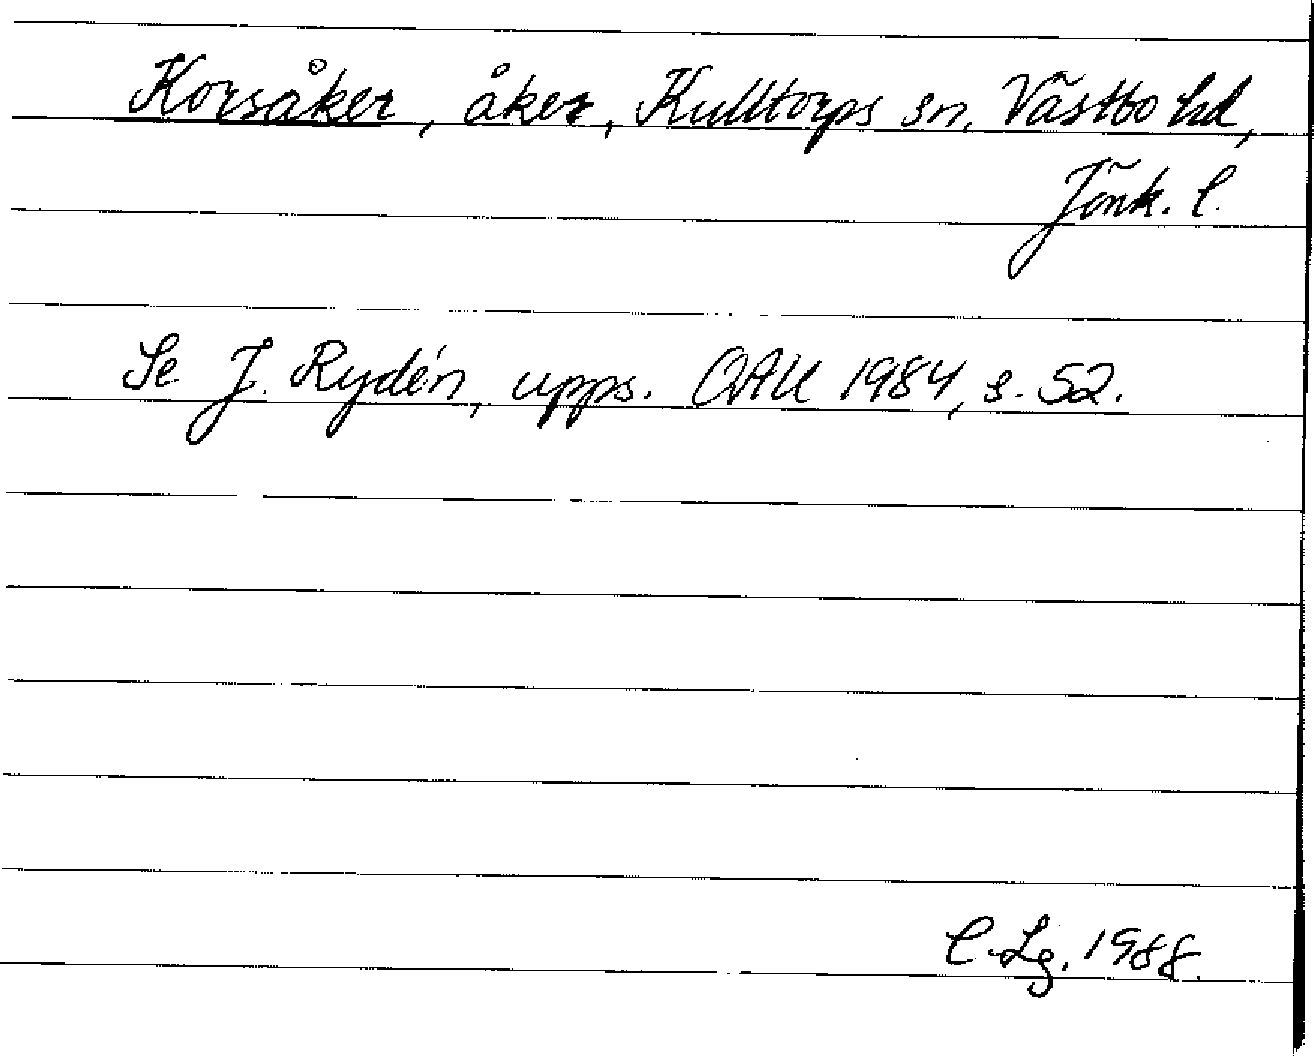 Korsåker, åker, Kulltorps sn, Västbo hd,
Jönk. l.
Se J. Rydén, upps. OAU 1984, s. 52.
C. Lg. 1988.